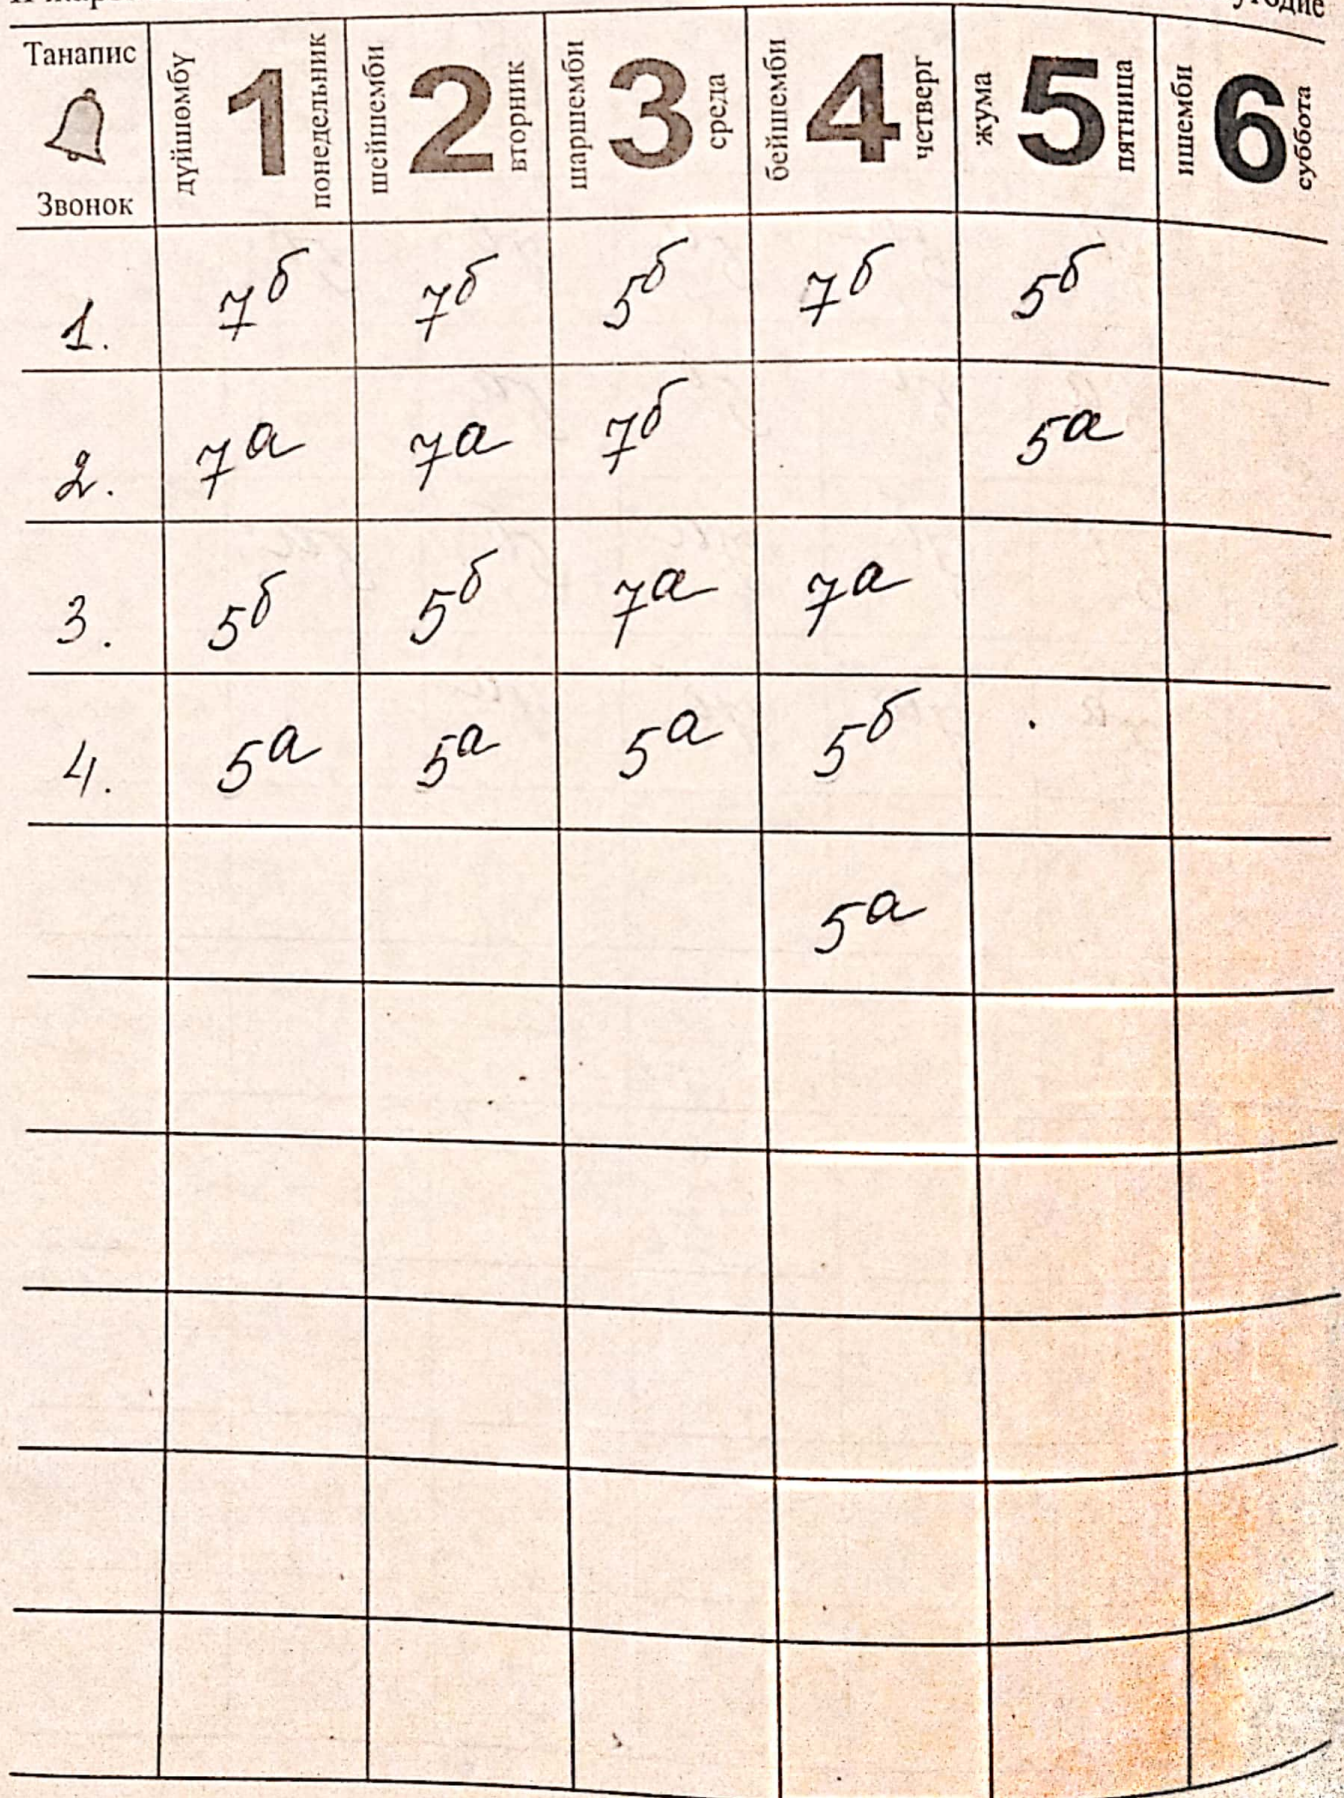 угодие
Танапис
Звонок
дүйшөмбү 1 понедельник
шейшемби 2 вторник
шаршемби 3 среда
бейшемби 4 четверг
жума 5 пятница
ишемби 6 суббота
1. 7б 7б 5б 7б 5б
2. 7а 7а 7б 5а
3. 5б 5б 7а 7а
4. 5а 5а 5а 5б
5а